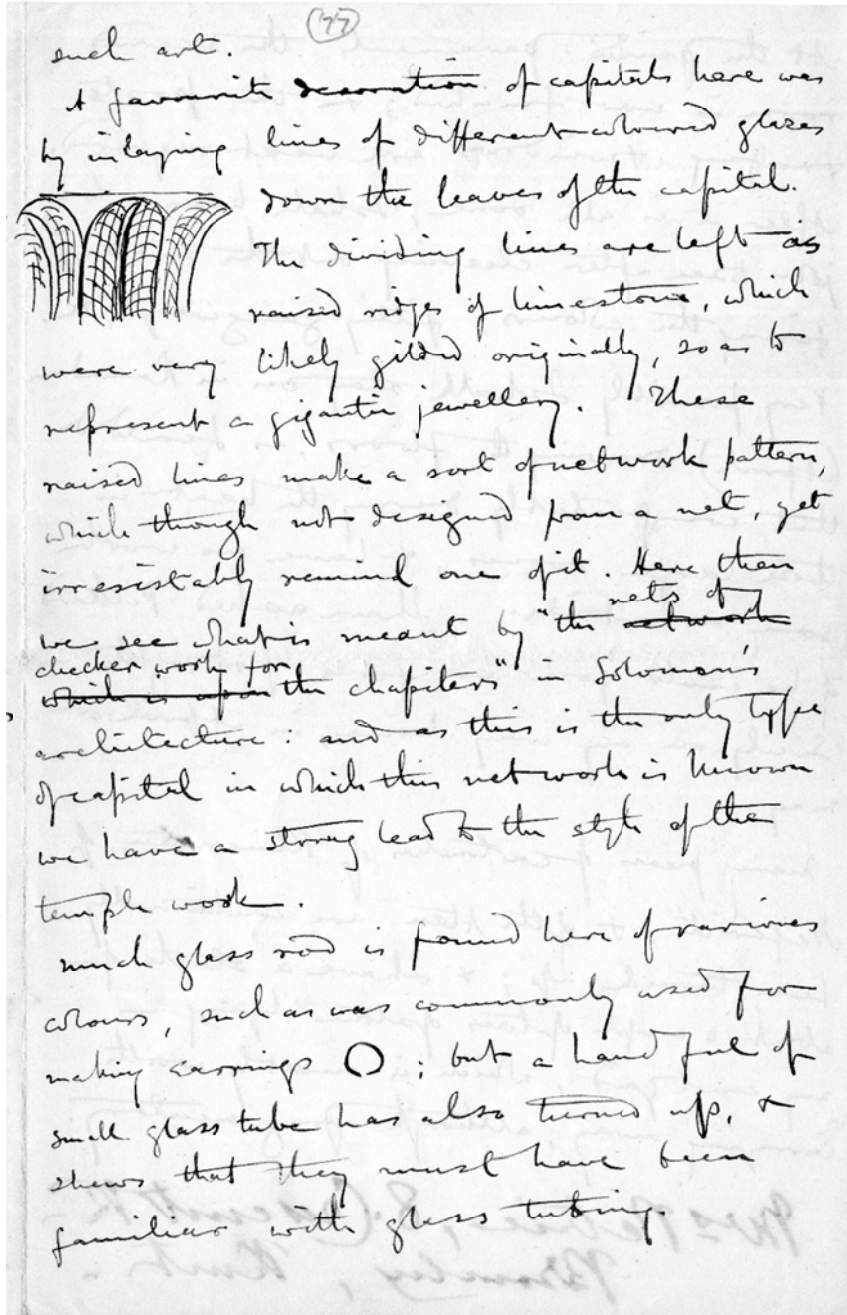 (77)
such art.
A favourite decoration of capitals here was
by inlaying lines of different coloured glazes
down the leaves of the capital.
The dividing lines are left as
raised ridges of limestone, which
were very likely gilded originally, so as to
represent a gigantic jewellery. These
raised lines make a sort of network pattern,
which though not designed from a net, yet
irresistably remind one of it. Here then
nets of
we see what is meant by "the network
checker work for
which is upon the chapiters" in Solomon's
architecture: and as this is the only type
of capital in which this network is known
we have a strong lead to the style of the
temple work.
Much glass rod is found here of various
colours, such as was commonly used for
making earrings O; but a handful of
small glass tube has also turned up, &
shews that they must have been
familiar with glass tubing.